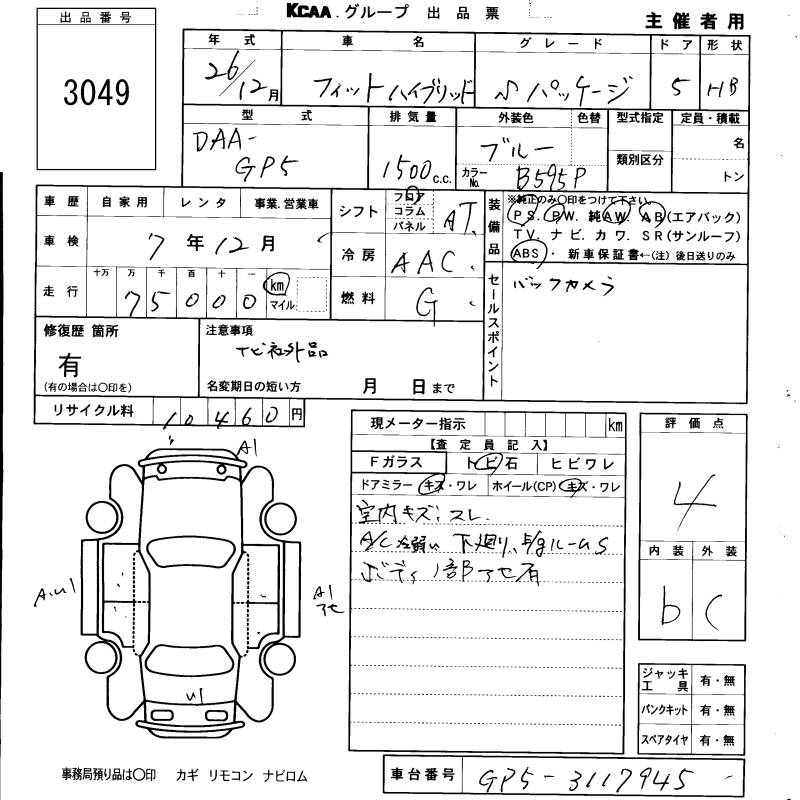 KCAA グループ 出品票
主催者用
出品番号
3049
年式 車名 グレード ドア 形状
26/12月 フィットハイブリッド Sパッケージ 5 HB
型式 排気量 外装色 色替 型式指定 定員・積載
DAA-GP5 1500c.c. ブルー 名
カラーNo. B595P 類別区分 トン
車歴 自家用 レンタ 事業.営業車
車検 7年12月
走行 十万 万 千 百 十 一
75000 km マイル
シフト フロア コラム パネル AT
冷房 AAC
燃料 G
装備品 ※純正のみ〇印をつけて下さい。
PS. PW. 純AW. AB(エアバック)
TV. ナビ. カワ. SR(サンルーフ)
ABS・ 新車保証書←(注)後日送りのみ
セールスポイント バックカメラ
修復歴 箇所
有
(有の場合は〇印を)
注意事項
ナビ社外品
名変期日の短い方 月 日まで
リサイクル料 10460円
現メーター指示 km
【査定員記入】
Fガラス トビ石 ヒビワレ
ドアミラー キズ・ワレ ホイール(CP) キズ・ワレ
室内キズ、スレ.
下廻り、E/gルームS
ボディ1部アセ有
評価点
4
内装 外装
b C
A1
A.U1
A1
アセ
U1
ジャッキ工具 有・無
パンクキット 有・無
スペアタイヤ 有・無
事務局預り品は〇印 カギ リモコン ナビロム
車台番号 GP5-3117945